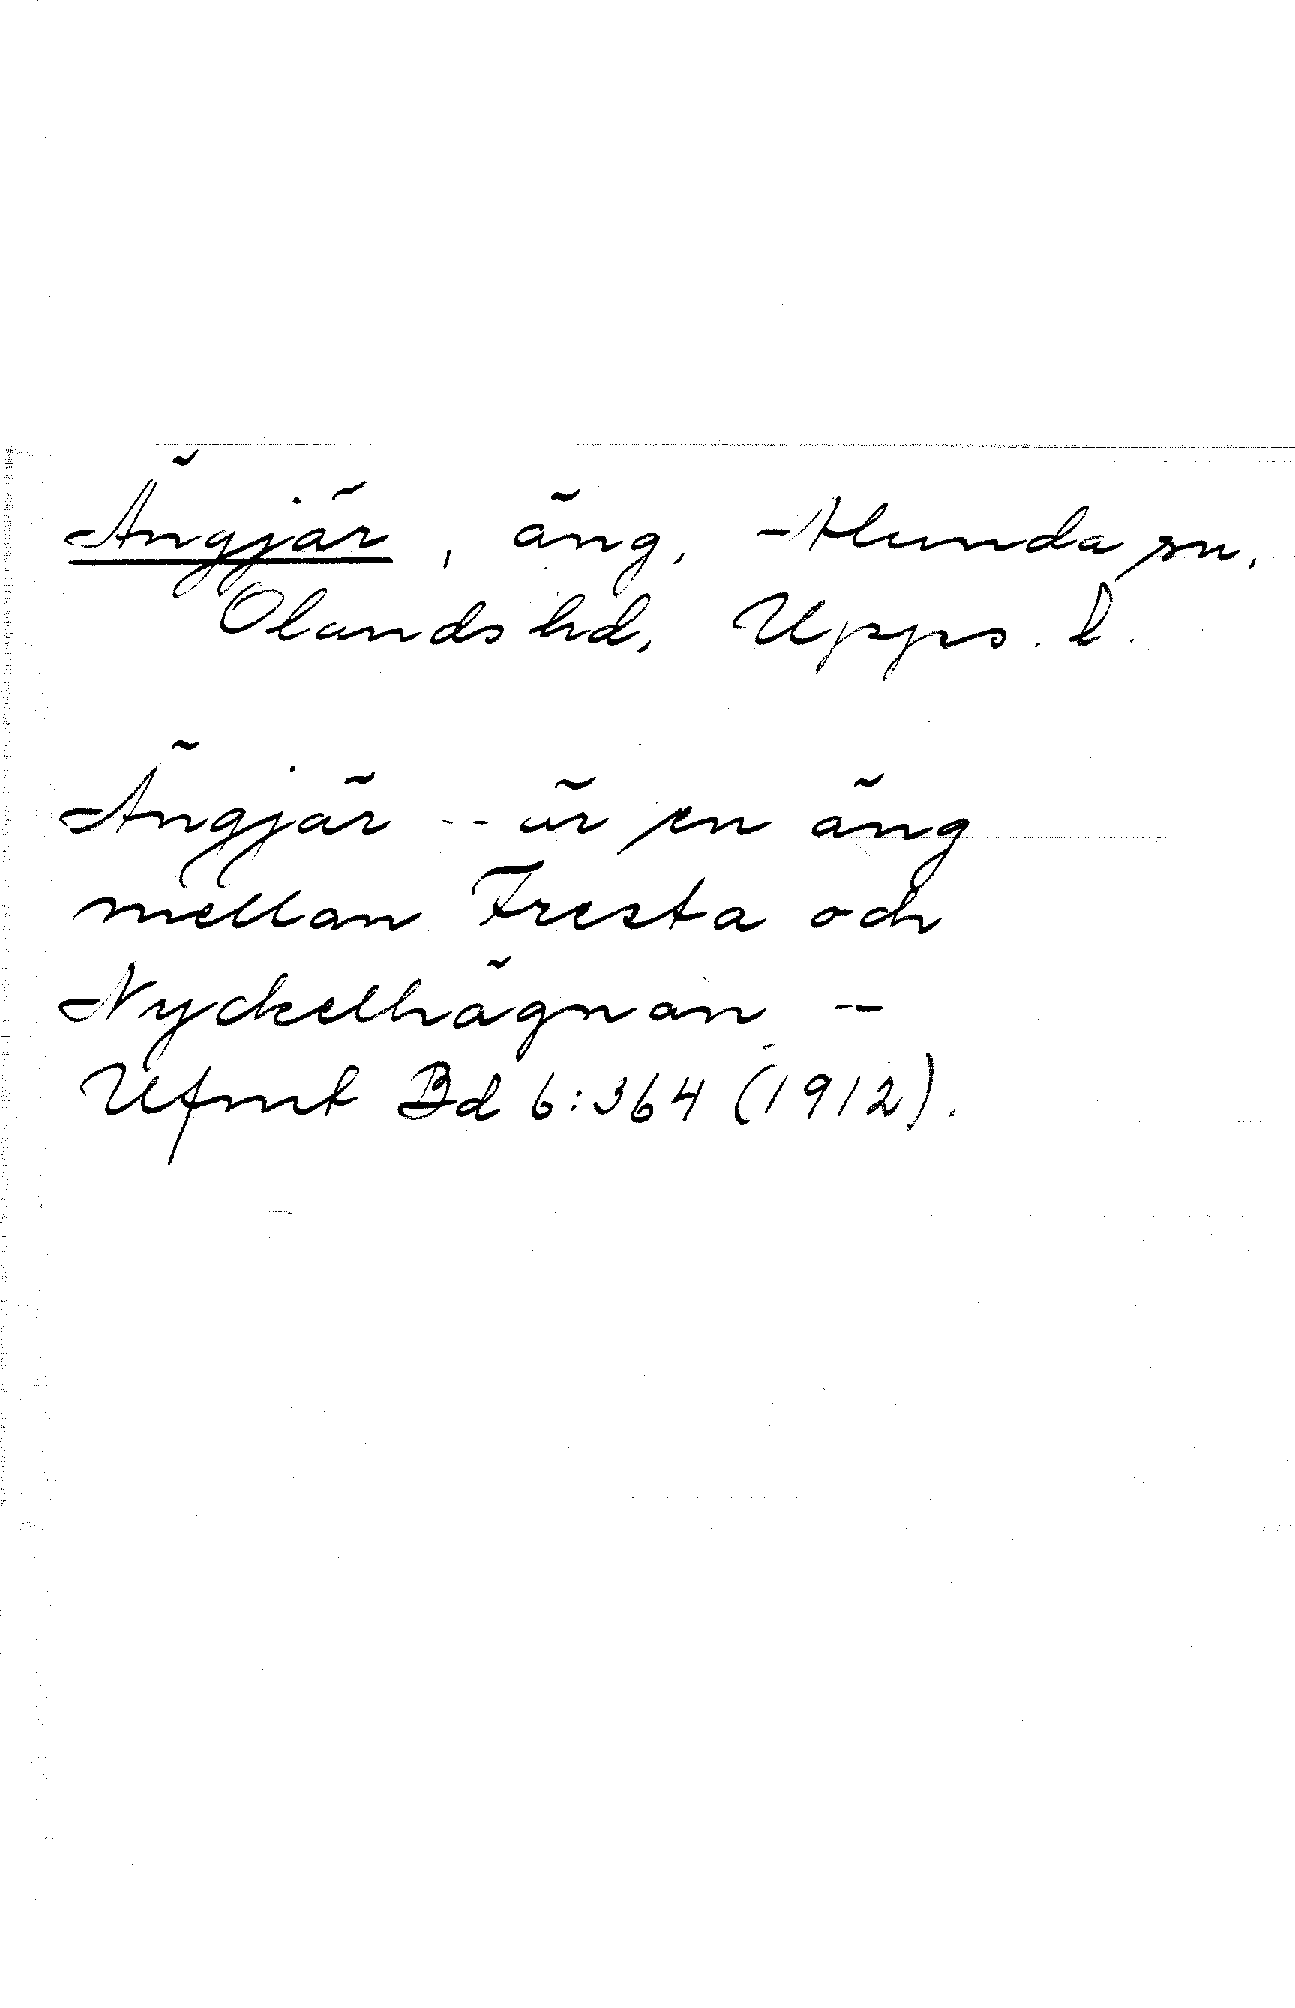 Ängjär, äng, Alunda sn,
Olands hd, Upps. l.
Ängjär -- är en äng
mellan Fresta och
Nyckelhägnan –
Ufmt Bd 6:364 (1912).